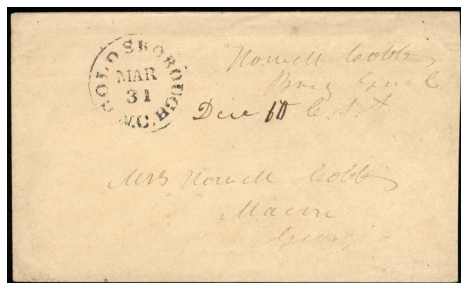 GOLDSBOROUGH N.C.
MAR
31
Howell Cobb
Brig Genl
Due 10 C.S.A
Mrs Howell Cobb
Macon